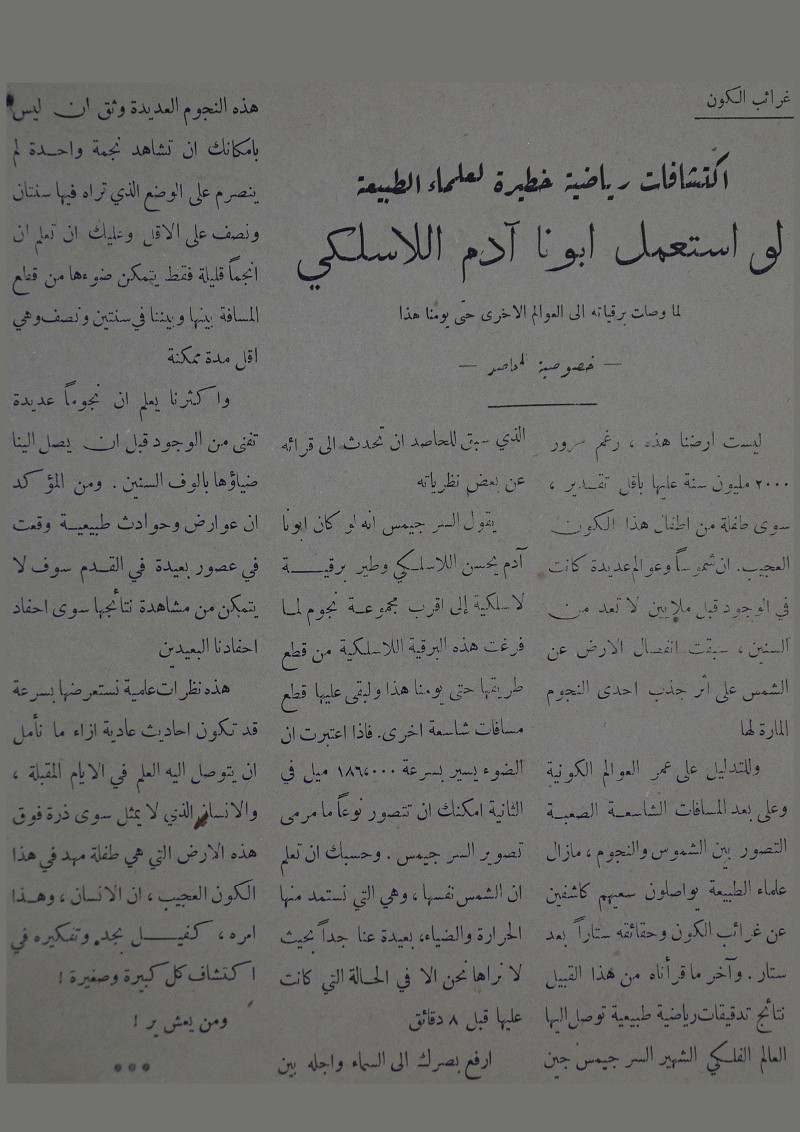 غرائب الكون
اكتشافات رياضية خطيرة لعلماء الطبيعة
لو استعمل ابونا آدم اللاسلكي
لما وصلت برقياته الى العوالم الاخرى حتى يومنا هذا
— خصوصية للحاصد —
ليست ارضنا هذه ، رغم مرور
٢٠٠٠ مليون سنة عليها باقل تقدير ،
سوى طفلة من اطفال هذا الكون
العجيب. ان شموساً وعوالم عديدة كانت
في الوجود قبل ملايين لا تعد من
السنين ، سبقت انفصال الارض عن
الشمس على اثر جذب احدى النجوم
المارة لها
وللتدليل على عمر العوالم الكونية
وعلى بعد المسافات الشاسعة الصعبة
التصور بين الشموس والنجوم ، مازال
علماء الطبيعة يواصلون سعيهم كاشفين
عن غرائب الكون وحقائقه ستاراً بعد
ستار . وآخر ما قرأناه من هذا القبيل
نتائج تدقيقات رياضية طبيعية توصل اليها
العالم الفلكي الشهير السر جيمس جين
الذي سبق للحاصد ان تحدث الى قرائه
عن بعض نظرياته
يقول السر جيمس انه لو كان ابونا
آدم يحسن اللاسلكي وطير برقية
لاسلكية إلى اقرب مجموعة نجوم لما
فرغت هذه البرقية اللاسلكية من قطع
طريقها حتى يومنا هذا ولبقى عليها قطع
مسافات شاسعة اخرى. فاذا اعتبرت ان
الضوء يسير بسرعة ١٨٦،٠٠٠ ميل في
الثانية امكنك ان تتصور نوعاً ما مرمى
تصوير السر جيمس . وحسبك ان تعلم
ان الشمس نفسها ، وهي التي نستمد منها
الحرارة والضياء، بعيدة عنا جداً بحيث
لا نراها نحن الا في الحالة التي كانت
عليها قبل ٨ دقائق
ارفع بصرك الى السماء واجله بين
هذه النجوم العديدة وثق ان ليس
بامكانك ان تشاهد نجمة واحدة لم
ينصرم على الوضع الذي تراه فيها سنتان
ونصف على الاقل وعليك ان تعلم ان
انجماً قليلة فقط يتمكن ضوءها من قطع
المسافة بينها وبيننا في سنتين ونصف وهي
اقل مدة ممكنة
واكثرنا يعلم ان نجوماً عديدة
تفنى من الوجود قبل ان يصل الينا
ضياؤها بالوف السنين . ومن المؤكد
ان عوارض وحوادث طبيعية وقعت
في عصور بعيدة في القدم سوف لا
يتمكن من مشاهدة نتائجها سوى احفاد
احفادنا البعيدين
هذه نظرات علمية نستعرضها بسرعة
قد تكون احاديث عادية ازاء ما نأمل
ان يتوصل اليه العلم في الايام المقبلة ،
والانسان الذي لا يمثل سوى ذرة فوق
هذه الارض التي هي طفلة مهد في هذا
الكون العجيب ، ان الانسان ، وهذا
امره ، كفيل بجده وتفكيره في
اكتشاف كل كبيرة وصغيرة !
ومن يعش ير !